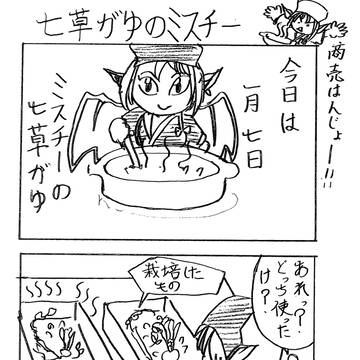 七草がゆのミスチー
商売はんじょー!!!
今日は
一月七日
ミスチーの
七草がゆ
あれっ?
どっち使った
け?
栽培した
もの